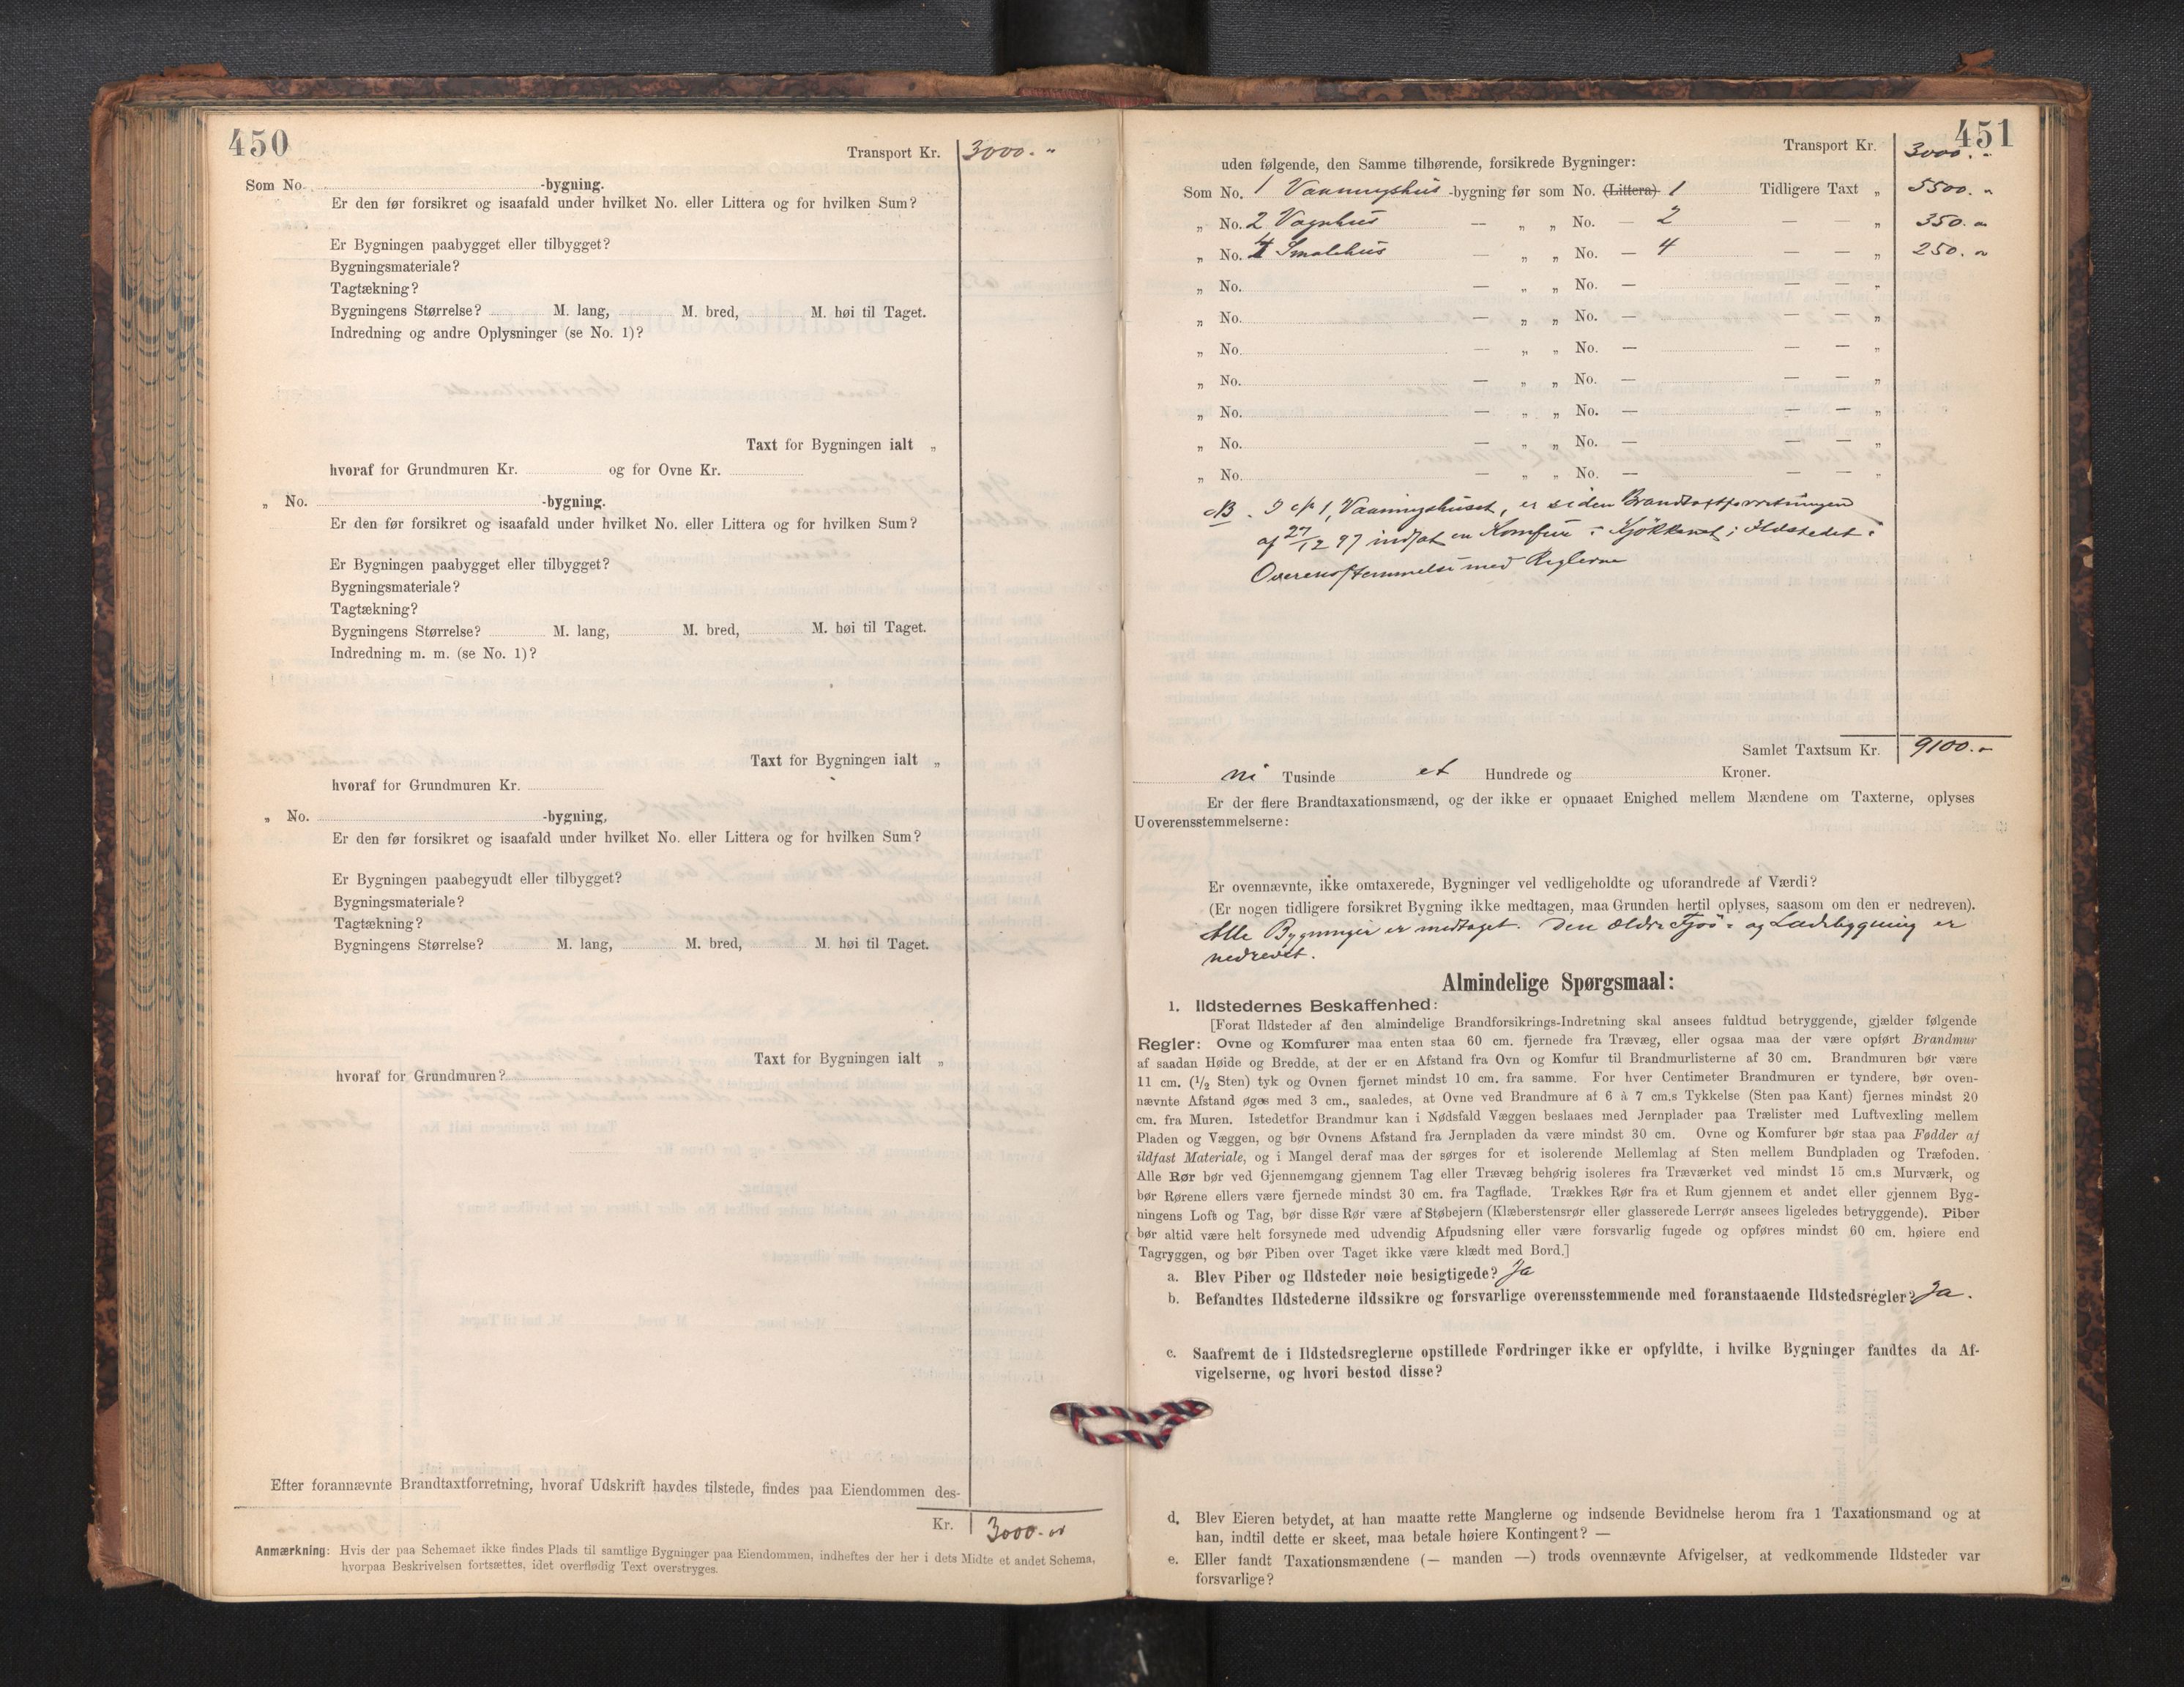 450
Transport Kr. 3000. "
Som No. -bygning.
Er den før forsikret og isaafald under hvilket No. eller Littera og for hvilken Sum?
Er Bygningen paabygget eller tilbygget?
Bygningsmateriale?
Tagtækning?
Bygningens Størrelse? M. lang, M. bred, M. høi til Taget.
Indredning og andre Oplysninger (se No. 1)?
Taxt for Bygningen ialt "
hvoraf for Grundmuren Kr. og for Ovne Kr.
" No. -bygning.
Er den før forsikret og isaafald under hvilket No. eller Littera og for hvilken Sum?
Er Bygningen paabygget eller tilbygget?
Bygningsmateriale?
Tagtækning?
Bygningens Størrelse? M. lang, M. bred, M. høi til Taget.
Indredning m. m. (se No. 1)?
Taxt for Bygningen ialt "
hvoraf for Grundmuren Kr.
" No. -bygning,
Er den før forsikret og isaafald under hvilket No. eller Littera og for hvilken Sum?
Er Bygningen paabegyndt eller tilbygget?
Bygningsmateriale?
Tagtækning?
Bygningens Størrelse? M. lang, M. bred, M. høi til Taget.
Taxt for Bygningen ialt "
hvoraf for Grundmuren?
Efter forannævnte Brandtaxtforretning, hvoraf Udskrift havdes tilstede, findes paa Eiendommen des-
Kr. 3000. "
Anmærkning: Hvis der paa Schemaet ikke findes Plads til samtlige Bygninger paa Eiendommen, indheftes der her i dets Midte et andet Schema,
hvorpaa Beskrivelsen fortsættes, idet overflødig Text overstryges.
451
Transport Kr. 3000. "
uden følgende, den Samme tilhørende, forsikrede Bygninger:
Som No. 1 Vaaningshus -bygning før som No. (Littera) 1 Tidligere Taxt " 5500. "
" No. 2 Vognhus — " " No. — 2 — — " 350. "
" No. 4 Smalehus — " " No. — 4 — — " 250. "
" No. — " " No. — — — "
" No. — " " No. — — — "
" No. — " " No. — — — "
" No. — " " No. — — — "
" No. — " " No. — — — "
" No. — " " No. — — — "
" No. — " " No. — — — "
NB. I № 1, Vaaningshuset, er siden Brandtaxtforretningen
af 27/12 97 indsat en Komfur i Kjøkkenet; Ildstedet i
Overensstemmelse med Reglerne
Samlet Taxtsum Kr. 9100. "
ni Tusinde et Hundrede og Kroner.
Er der flere Brandtaxationsmænd, og der ikke er opnaaet Enighed mellem Mændene om Taxterne, oplyses
Uoverensstemmelserne:
Er ovennævnte, ikke omtaxerede, Bygninger vel vedligeholdte og uforandrede af Værdi?
(Er nogen tidligere forsikret Bygning ikke medtagen, maa Grunden hertil oplyses, saasom den er nedreven).
Alle Bygninger er medtaget. Den ældre Fjøs- og Ladebygning er
nedrevet.
Almindelige Spørgsmaal:
1. Ildstedernes Beskaffenhed:
[Forat Ildsteder af den almindelige Brandforsikrings-Indretning skal ansees fuldtud betryggende, gjælder følgende
Regler: Ovne og Komfurer maa enten staa 60 cm. fjernede fra Trævæg, eller ogsaa maa der være opført Brandmur
af saadan Høide og Bredde, at der er en Afstand fra Ovn og Komfur til Brandmurlisterne af 30 cm. Brandmuren bør være
11 cm. (1/2 Sten) tyk og Ovnen fjernet mindst 10 cm. fra samme. For hver Centimeter Brandmuren er tyndere, bør oven-
nævnte Afstand øges med 3 cm., saaledes, at Ovne ved Brandmure af 6 à 7 cm.s Tykkelse (Sten paa Kant) fjernes mindst 20
cm. fra Muren. Istedetfor Brandmur kan i Nødsfald Væggen beslaaes med Jernplader paa Trælister med Luftvexling mellem
Pladen og Væggen, og bør Ovnens Afstand fra Jernpladen da være mindst 30 cm. Ovne og Komfurer bør staa paa Fødder af
ildfast Materiale, og i Mangel deraf maa der sørges for et isolerende Mellemlag af Sten mellem Bundpladen og Træfoden.
Alle Rør bør ved Gjennemgang gjennem Tag eller Trævæg behørig isoleres fra Træværket ved mindst 15 cm.s Murværk, og
bør Rørene ellers være fjernede mindst 30 cm. fra Tagflade. Trækkes Rør fra et Rum gjennem et andet eller gjennem Byg-
ningens Loft og Tag, bør disse Rør være af Støbejern (Klæberstensrør eller glasserede Lerrør ansees ligeledes betryggende). Piber
bør altid være helt forsynede med udvendig Afpudsning eller være forsvarlig fugede og opføres mindst 60 cm. høiere end
Tagryggen, og bør Piben over Taget ikke være klædt med Bord.]
a. Blev Piber og Ildsteder nøie besigtigede? Ja
b. Befandtes Ildstederne ildssikre og forsvarlige overensstemmende med foranstaaende Ildstedsregler? Ja.
c. Saafremt de i Ildstedsreglerne opstillede Fordringer ikke er opfyldte, i hvilke Bygninger fandtes da Af-
vigelserne, og hvori bestod disse?
d. Blev Eieren betydet, at han maatte rette Manglerne og indsende Bevidnelse herom fra 1 Taxationsmand og at
han, indtil dette er skeet, maa betale høiere Kontingent? —
e. Eller fandt Taxationsmændene (— manden —) trods ovennævnte Afvigelser, at vedkommende Ildsteder var
forsvarlige?